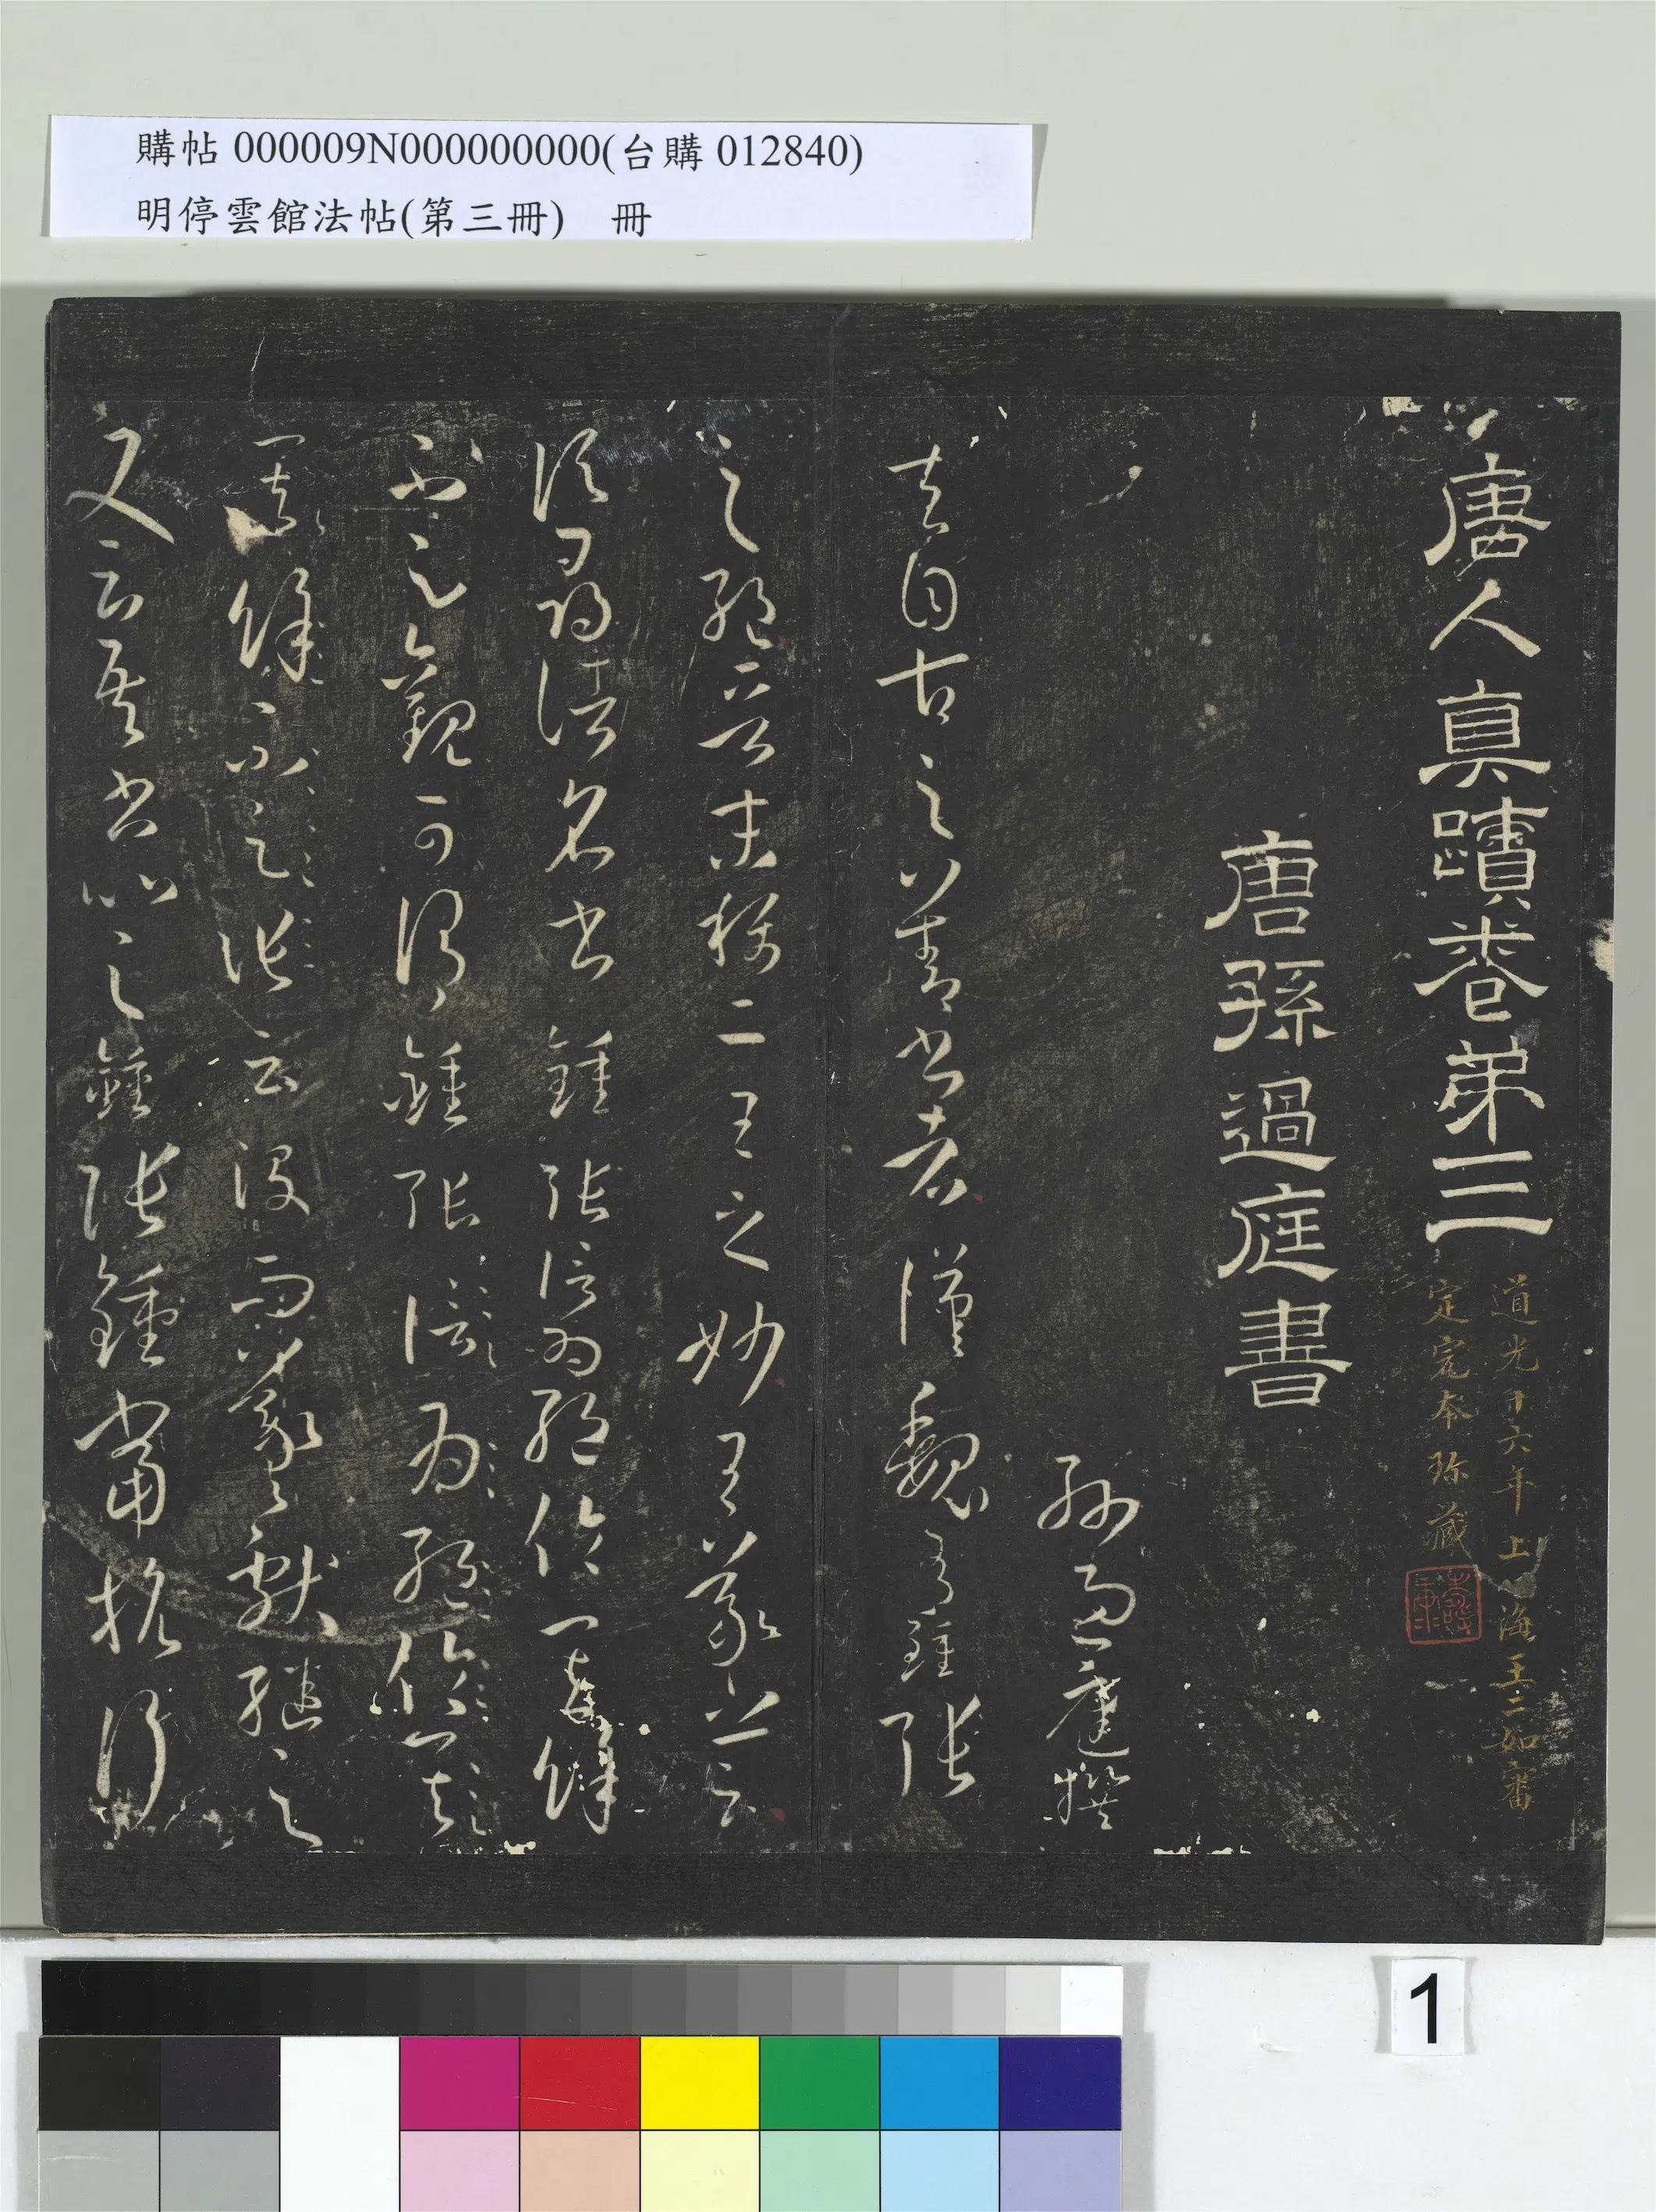 購帖 000009N000000000(台購 012840)
明停雲館法帖(第三冊) 冊
唐人真蹟卷第三
道光十六年上海王二如審
定完本珍藏
唐孫過庭書
孫過庭撰
夫自古之善書者漢魏有鍾張
之絕晉末稱二王之妙王羲之云
頃尋諸名書鍾張信為絕倫其餘
不足觀可謂鍾張信為絕倫其
餘不足云沒而羲獻繼之
又云吾書比之鍾張鍾當抗行
1